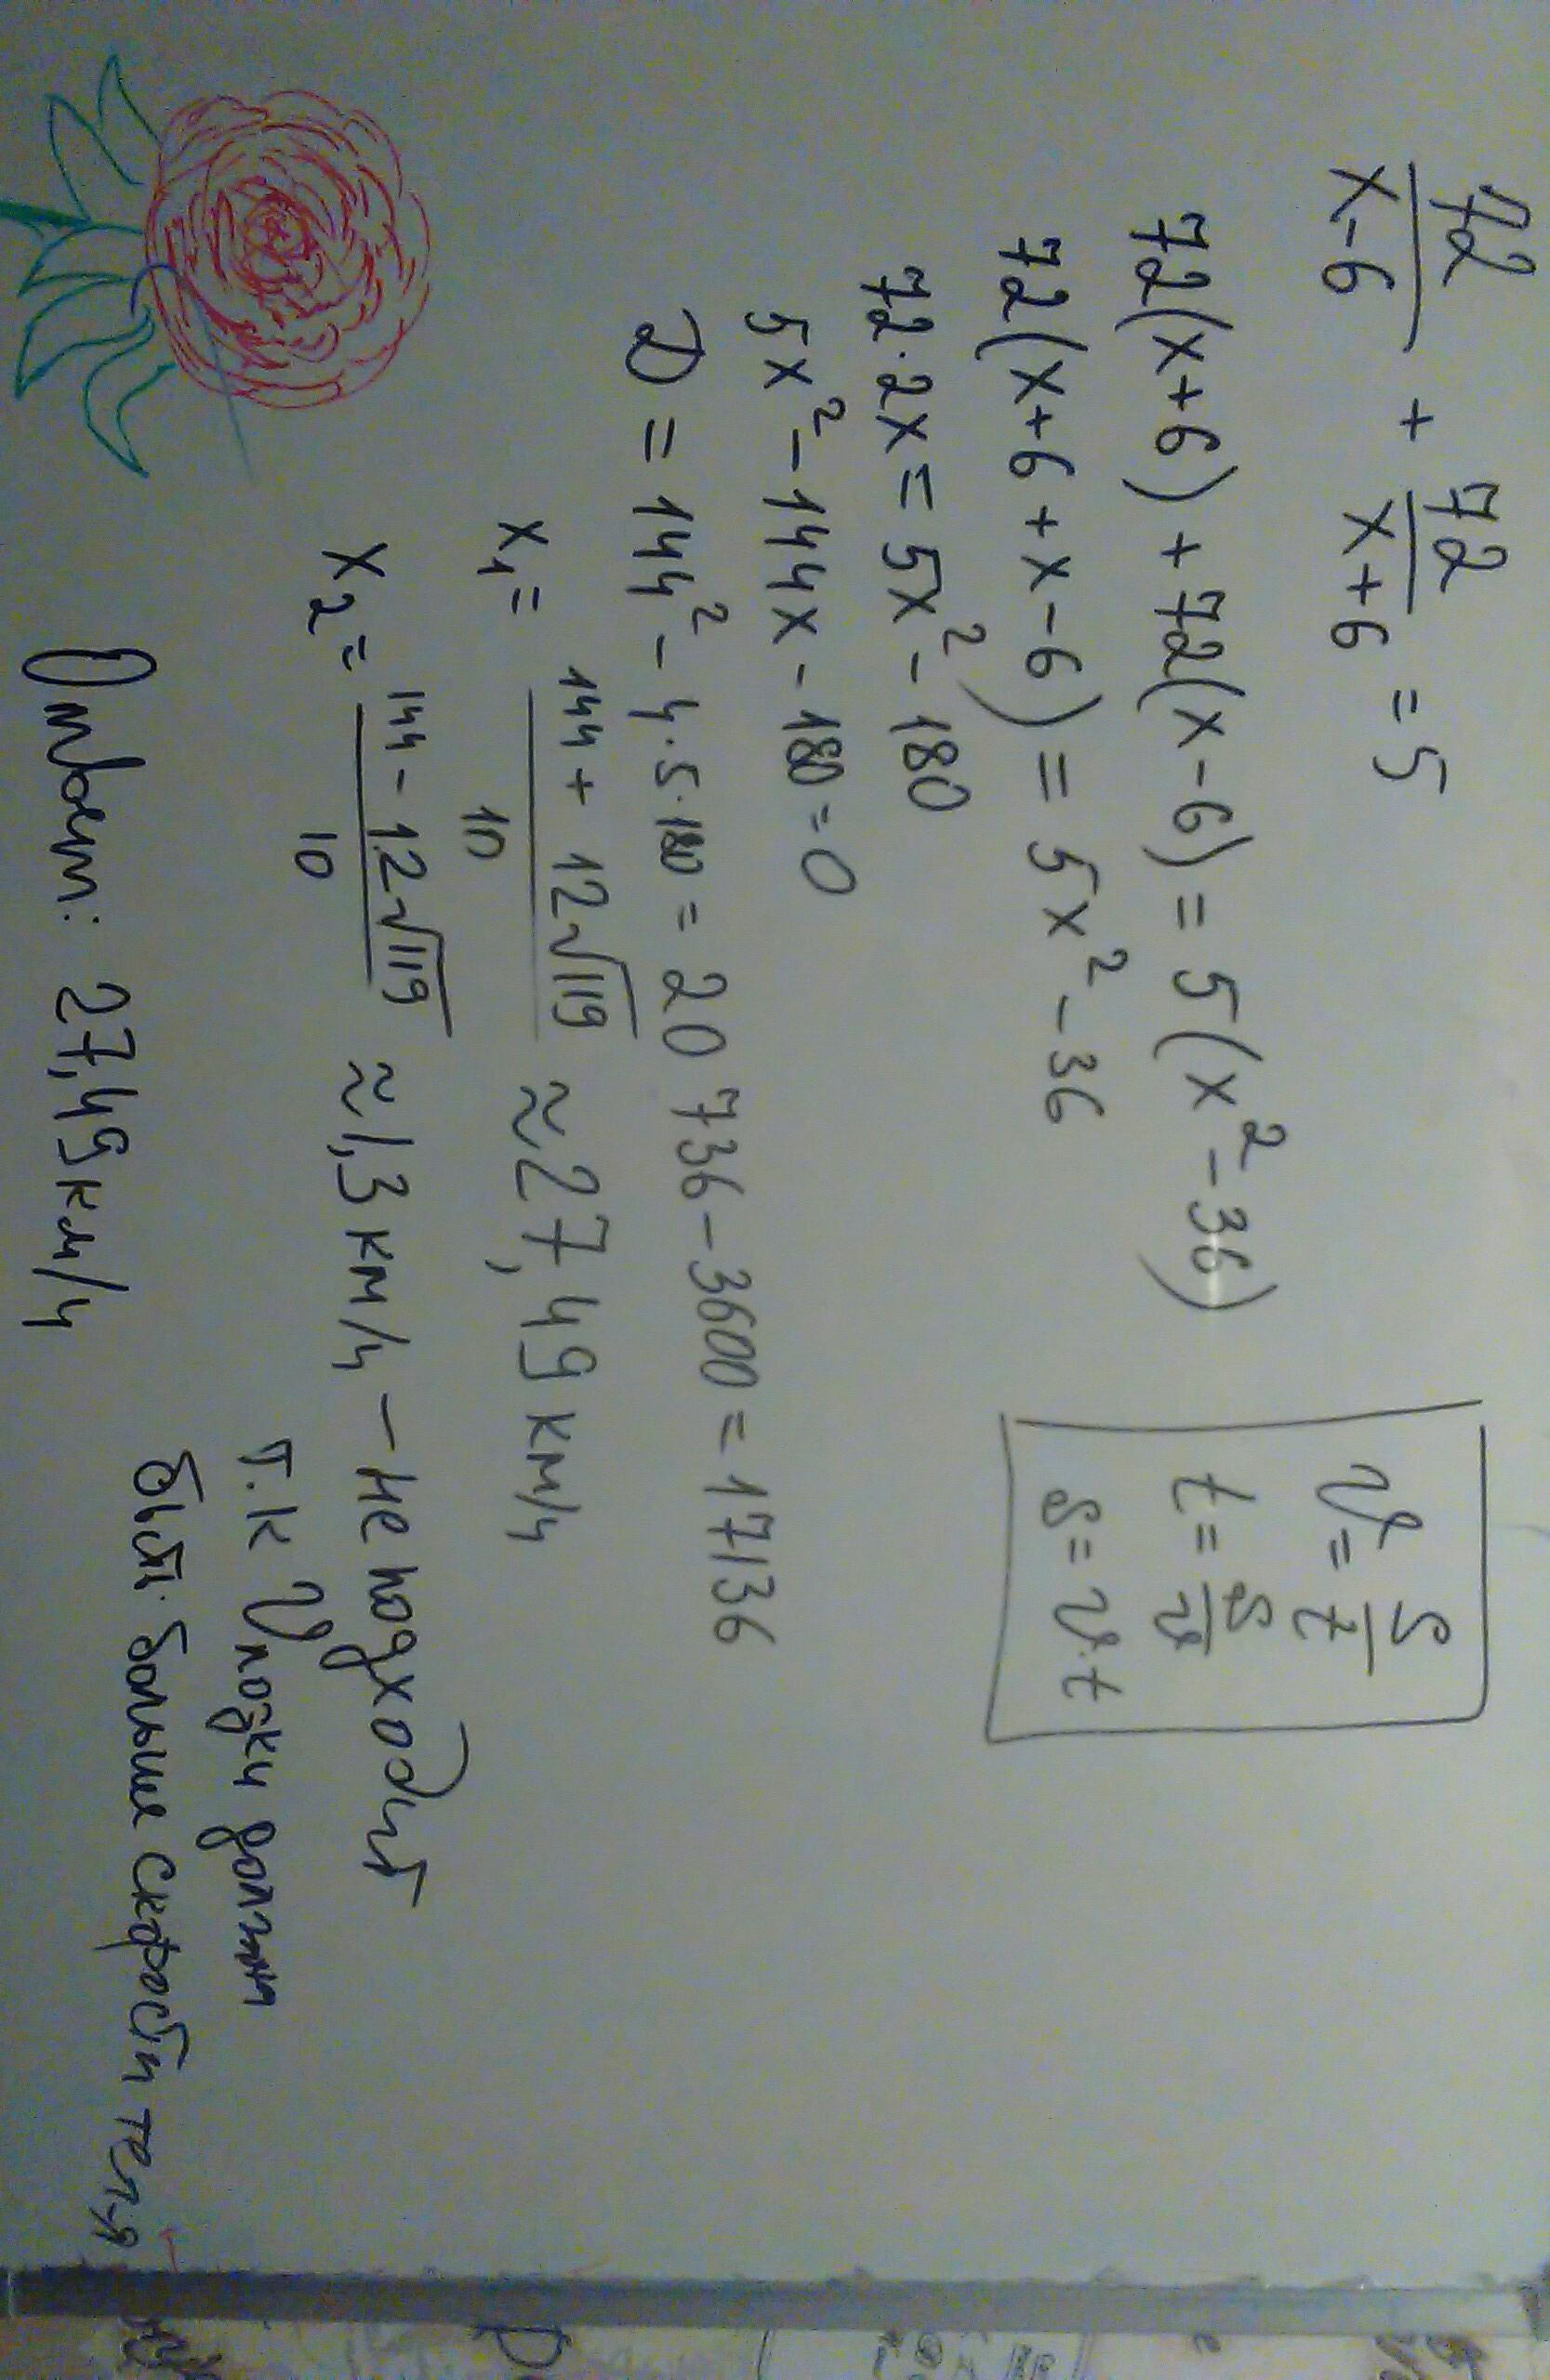 72/(x-6) + 72/(x+6) = 5
72(x+6) + 72(x-6) = 5(x²-36)
72(x+6+x-6) = 5x²-36
72·2x = 5x²-180
5x²-144x-180=0
D = 144²-4·5·180 = 20736-3600 = 17136
x₁= (144+12√119)/10 ≈ 27,49 км/ч
x₂= (144-12√119)/10 ≈ 1,3 км/ч – не подходит
т.к V лодки должна
быть больше скорости
Ответ: 27,49 км/ч
v = S/t
t = S/v
S = v·t